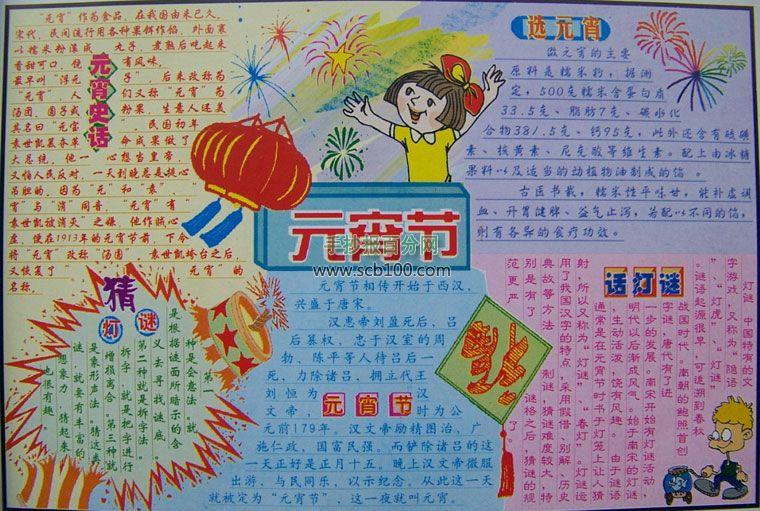 "元宵"作为食品，在我国由来已久。
宋代，民间流行用各种果饵作馅，外面裹
以糯米粉漾成 丸子，煮熟后吃起来
香甜可口，饶 有风味。
最早叫"浮元 子"，后来改称为
"元宵"，人 们又称"元宵"为
汤团、团子或 粉果，生意人还美
其名曰"元宝 ，民国初年，
袁世凯篡夺革 命成果做了
大总统，他一 心想当皇帝，
又怕人民反对，一天到晚总是提心
吊胆的，因为"元"和"袁"、
"宵"与"消"同音，"元宵"有
"袁世凯被消灭"之嫌，他作贼心
虚，便在1913年的元宵节前，下令
将"元宵"改称"汤团"，袁世凯垮台之后，
又恢复了 "元宵"的
名称。
元宵史话
选元宵
做元宵的主要
原料是糯米粉，据测
定，500克糯米含蛋白质
33.5克、脂肪7克、碳水化
合物381.5克、钙95克，此外还含有硫磺
素、核黄素、尼克酸等维生素。配上南冰糖
果料以及适当的动植物油制成的馅。
古医书载，糯米性平味甘，能补虚调
血、开胃健脾、益气止泻，若配以不同的馅，
则有各异的食疗功效。
元宵节
手抄报百分网
www.scb100.com
元宵节相传开始于西汉，
兴盛于唐宋。
汉惠帝刘盈死后，吕
后篡权，忠于汉室的周
勃、陈平等人待吕后一
死，力除诸吕，拥立代王
刘恒为 汉
文帝， 元宵节 时为公
元前179年。汉文帝励精图治，广
施仁政，国富民强。而铲除诸吕的这
一天正好是正月十五。晚上汉文帝微服
出游，与民同乐，以示纪念，从此这一天
就被定为"元宵节"，这一夜就叫元宵。
猜灯谜
第一
种是会意法，就
义去寻找谜底。
是根据谜面所暗示的含
第二种就是拆字法
拆字，就是把字进行
增损离合，第三种就
是象形法，猜这类
谜，就要有丰富的
想象力，猜起来
也很有趣
话灯谜
灯谜，中国特有的文
字游戏，又称为"隐语"
、"灯虎"、"灯谜"
。谜语起源很早，可追溯到春秋
战国时代。南朝的鲍照首创
字谜，唐代有了进
一步的发展。南宋开始有灯谜活动，
明代以后渐成风气，始于南宋的灯谜
，生动活泼，饶有风趣。由于谜语
通常是在元宵节时书于灯笼上让人猜
射，所以又称为"灯谜"、"春灯"，灯谜运
用了我国汉字的特点，采用假借、别解、历史
典故等方法，制谜，猜谜难度较大，特
别是有了 谜格之后，猜谜的规
范更严